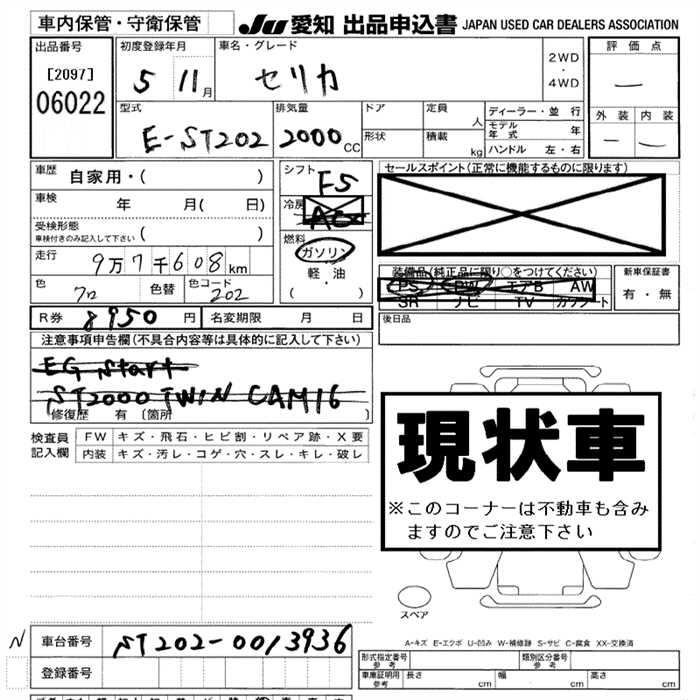 車内保管・守衛保管 Ju 愛知 出品申込書 JAPAN USED CAR DEALERS ASSOCIATION
出品番号 初度登録年月 車名・グレード 評価点
[2097] 5 11月 セリカ 2WD・4WD —
06022
型式 排気量 ドア 定員 ディーラー・並行 外装 内装
E-ST202 2000cc 形状 人 モデル年式 年 — —
積載 kg ハンドル 左・右
車歴 自家用・( ) シフト F5 セールスポイント(正常に機能するものに限ります)
車検 年 月( 日) 冷房 AC
受検形態 ( )
車検付きのみ記入して下さい
燃料 ガソリン
走行 9万7千608km 軽・油 装備品(純正品に限り○をつけてください) 新車保証書
色 色替 色コード ( ) PS PW エアB AW 有・無
クロ 202 SR ナビ TV カワシート
R券 8950円 名変期限 月 日 後日品
注意事項申告欄(不具合内容等は具体的に記入して下さい)
EG Start
ST2000 TWIN CAM16
修復歴 有 〔箇所 〕
現状車
※このコーナーは不動車も含み
ますのでご注意下さい
検査員 FW キズ・飛石・ヒビ割・リペア跡・X要
記入欄 内装 キズ・汚レ・コゲ・穴・スレ・キレ・破レ
スペア
N 車台番号 ST202-0013936
A-キズ E-エクボ U-凹み W-補修跡 S-サビ C-腐食 XX-交換済
登録番号 形式指定番号 参考 類別区分番号 参考
車庫証明用 参考 長さ cm 幅 cm 高さ cm